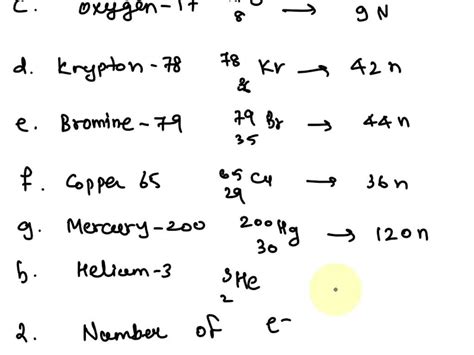 c. oxygen-17 8 → 9N
d. Krypton-78 78 Kr → 42n
e. Bromine-79 79 35 Br → 44n
f. Copper 65 65 29 Cu → 36n
g. Mercury-200 200 30 Hg → 120n
h. Helium-3 3 2 He
2. Number of e-